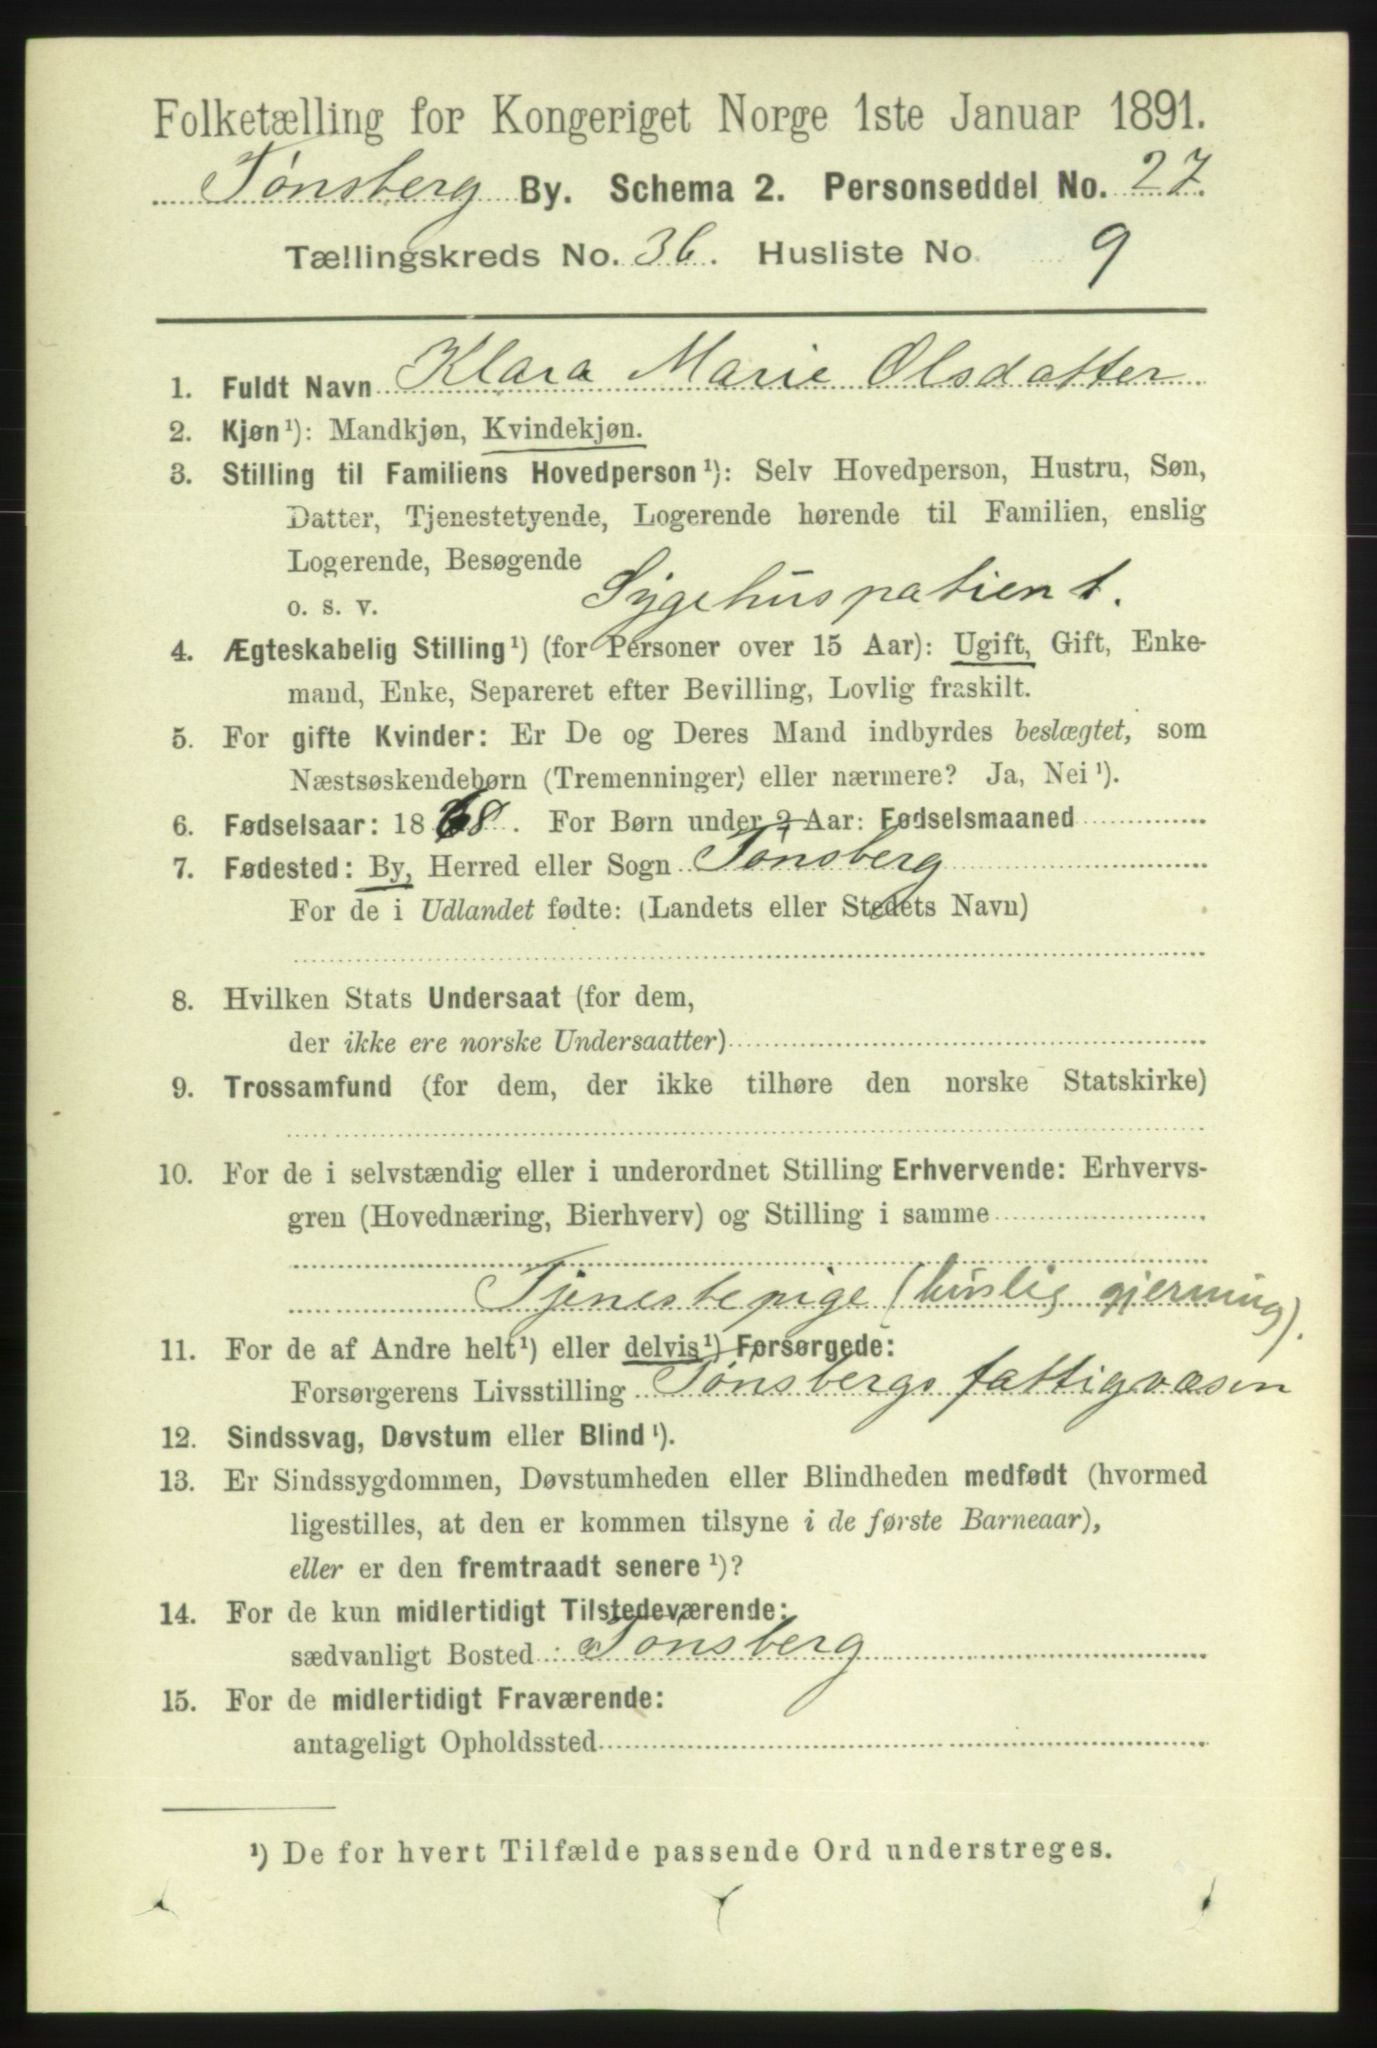 Folketælling for Kongeriget Norge 1ste Januar 1891.
Tønsberg By. Schema 2. Personseddel No. 27.
Tællingskreds No. 36. Husliste No. 9
1. Fuldt Navn Klara Marie Olsdatter
2. Kjøn¹): Mandkjøn, Kvindekjøn.
3. Stilling til Familiens Hovedperson¹): Selv Hovedperson, Hustru, Søn,
Datter, Tjenestetyende, Logerende hørende til Familien, enslig
Logerende, Besøgende
o. s. v. Sygehuspatient.
4. Ægteskabelig Stilling¹) (for Personer over 15 Aar): Ugift, Gift, Enke-
mand, Enke, Separeret efter Bevilling, Lovlig fraskilt.
5. For gifte Kvinder: Er De og Deres Mand indbyrdes beslægtet, som
Næstsøskendebørn (Tremenninger) eller nærmere? Ja, Nei¹).
6. Fødselsaar: 1868. For Børn under 2 Aar: Fødselsmaaned
7. Fødested: By, Herred eller Sogn Tønsberg
For de i Udlandet fødte: (Landets eller Stedets Navn)
8. Hvilken Stats Undersaat (for dem,
der ikke ere norske Undersaatter)
9. Trossamfund (for dem, der ikke tilhøre den norske Statskirke)
10. For de i selvstændig eller i underordnet Stilling Erhvervende: Erhvervs-
gren (Hovednæring, Bierhverv) og Stilling i samme
Tjenestepige (huslig gjerning).
11. For de af Andre helt¹) eller delvis¹) Forsørgede:
Forsørgerens Livsstilling Tønsbergs fattigvæsen
12. Sindssvag, Døvstum eller Blind¹).
13. Er Sindssygdommen, Døvstumheden eller Blindheden medfødt (hvormed
ligestilles, at den er kommen tilsyne i de første Barneaar),
eller er den fremtraadt senere¹)?
14. For de kun midlertidigt Tilstedeværende:
sædvanligt Bosted: Tønsberg
15. For de midlertidigt Fraværende:
antageligt Opholdssted
¹) De for hvert Tilfælde passende Ord understreges.